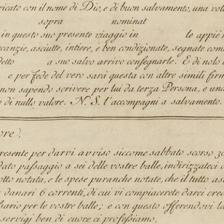 ricato con il nome di Dio, e di buon salvamento, una volta
sopra nominat
in questo suo presente viaggio in lo appie
canzie, asciutte, intiere, e ben condizionate, segnate come
detto a suo salvo arrivo consegnarle. E di nolo
e per fede del vero sarà questa con altre simili firm
non sapendo scrivere per lui da terza Persona, e una
di niuno valore. N. S. l'accompagni a salvamento.
ore.
presente per darvi avviso siccome sabbato scorso
dato passaggio a sei delle vostre balle, indirizzateci
otto notata, e le spese puranche notate, che il tutto
danari 6 correnti, di cui vi compiacerete darci cred
hario per le vostre balle; e con questo offerendovi
servigi ben di cuore ci professiamo,